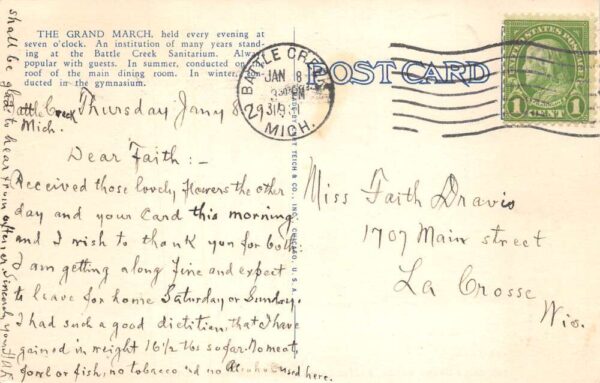 THE GRAND MARCH, held every evening at
seven o'clock. An institution of many years stand-
ing at the Battle Creek Sanitarium. Always
popular with guests. In summer, conducted on the
roof of the main dining room. In winter, con-
ducted in the gymnasium.
POST CARD
BATTLE CREEK
JAN 8
1931
MICH.
UNITED STATES POSTAGE
1 CENT 1
Battle Creek Thursday Jany 8, 29
Mich.
Dear Faith:-
Received those lovely flowers the other
day and your card this morning
and I wish to thank you for both.
I am getting along fine and expect
to leave for home Saturday or Sunday.
I had such a good dietitian, that I have
gained in weight 16 1/2 lbs so far. No meat,
fowl or fish, no tobacco and no Alcohol used here.
shall be glad to hear from
Sincerely yours
Miss Faith Dravis
1707 Main street
La Crosse
Wis.
CHICAGO, U.S.A.